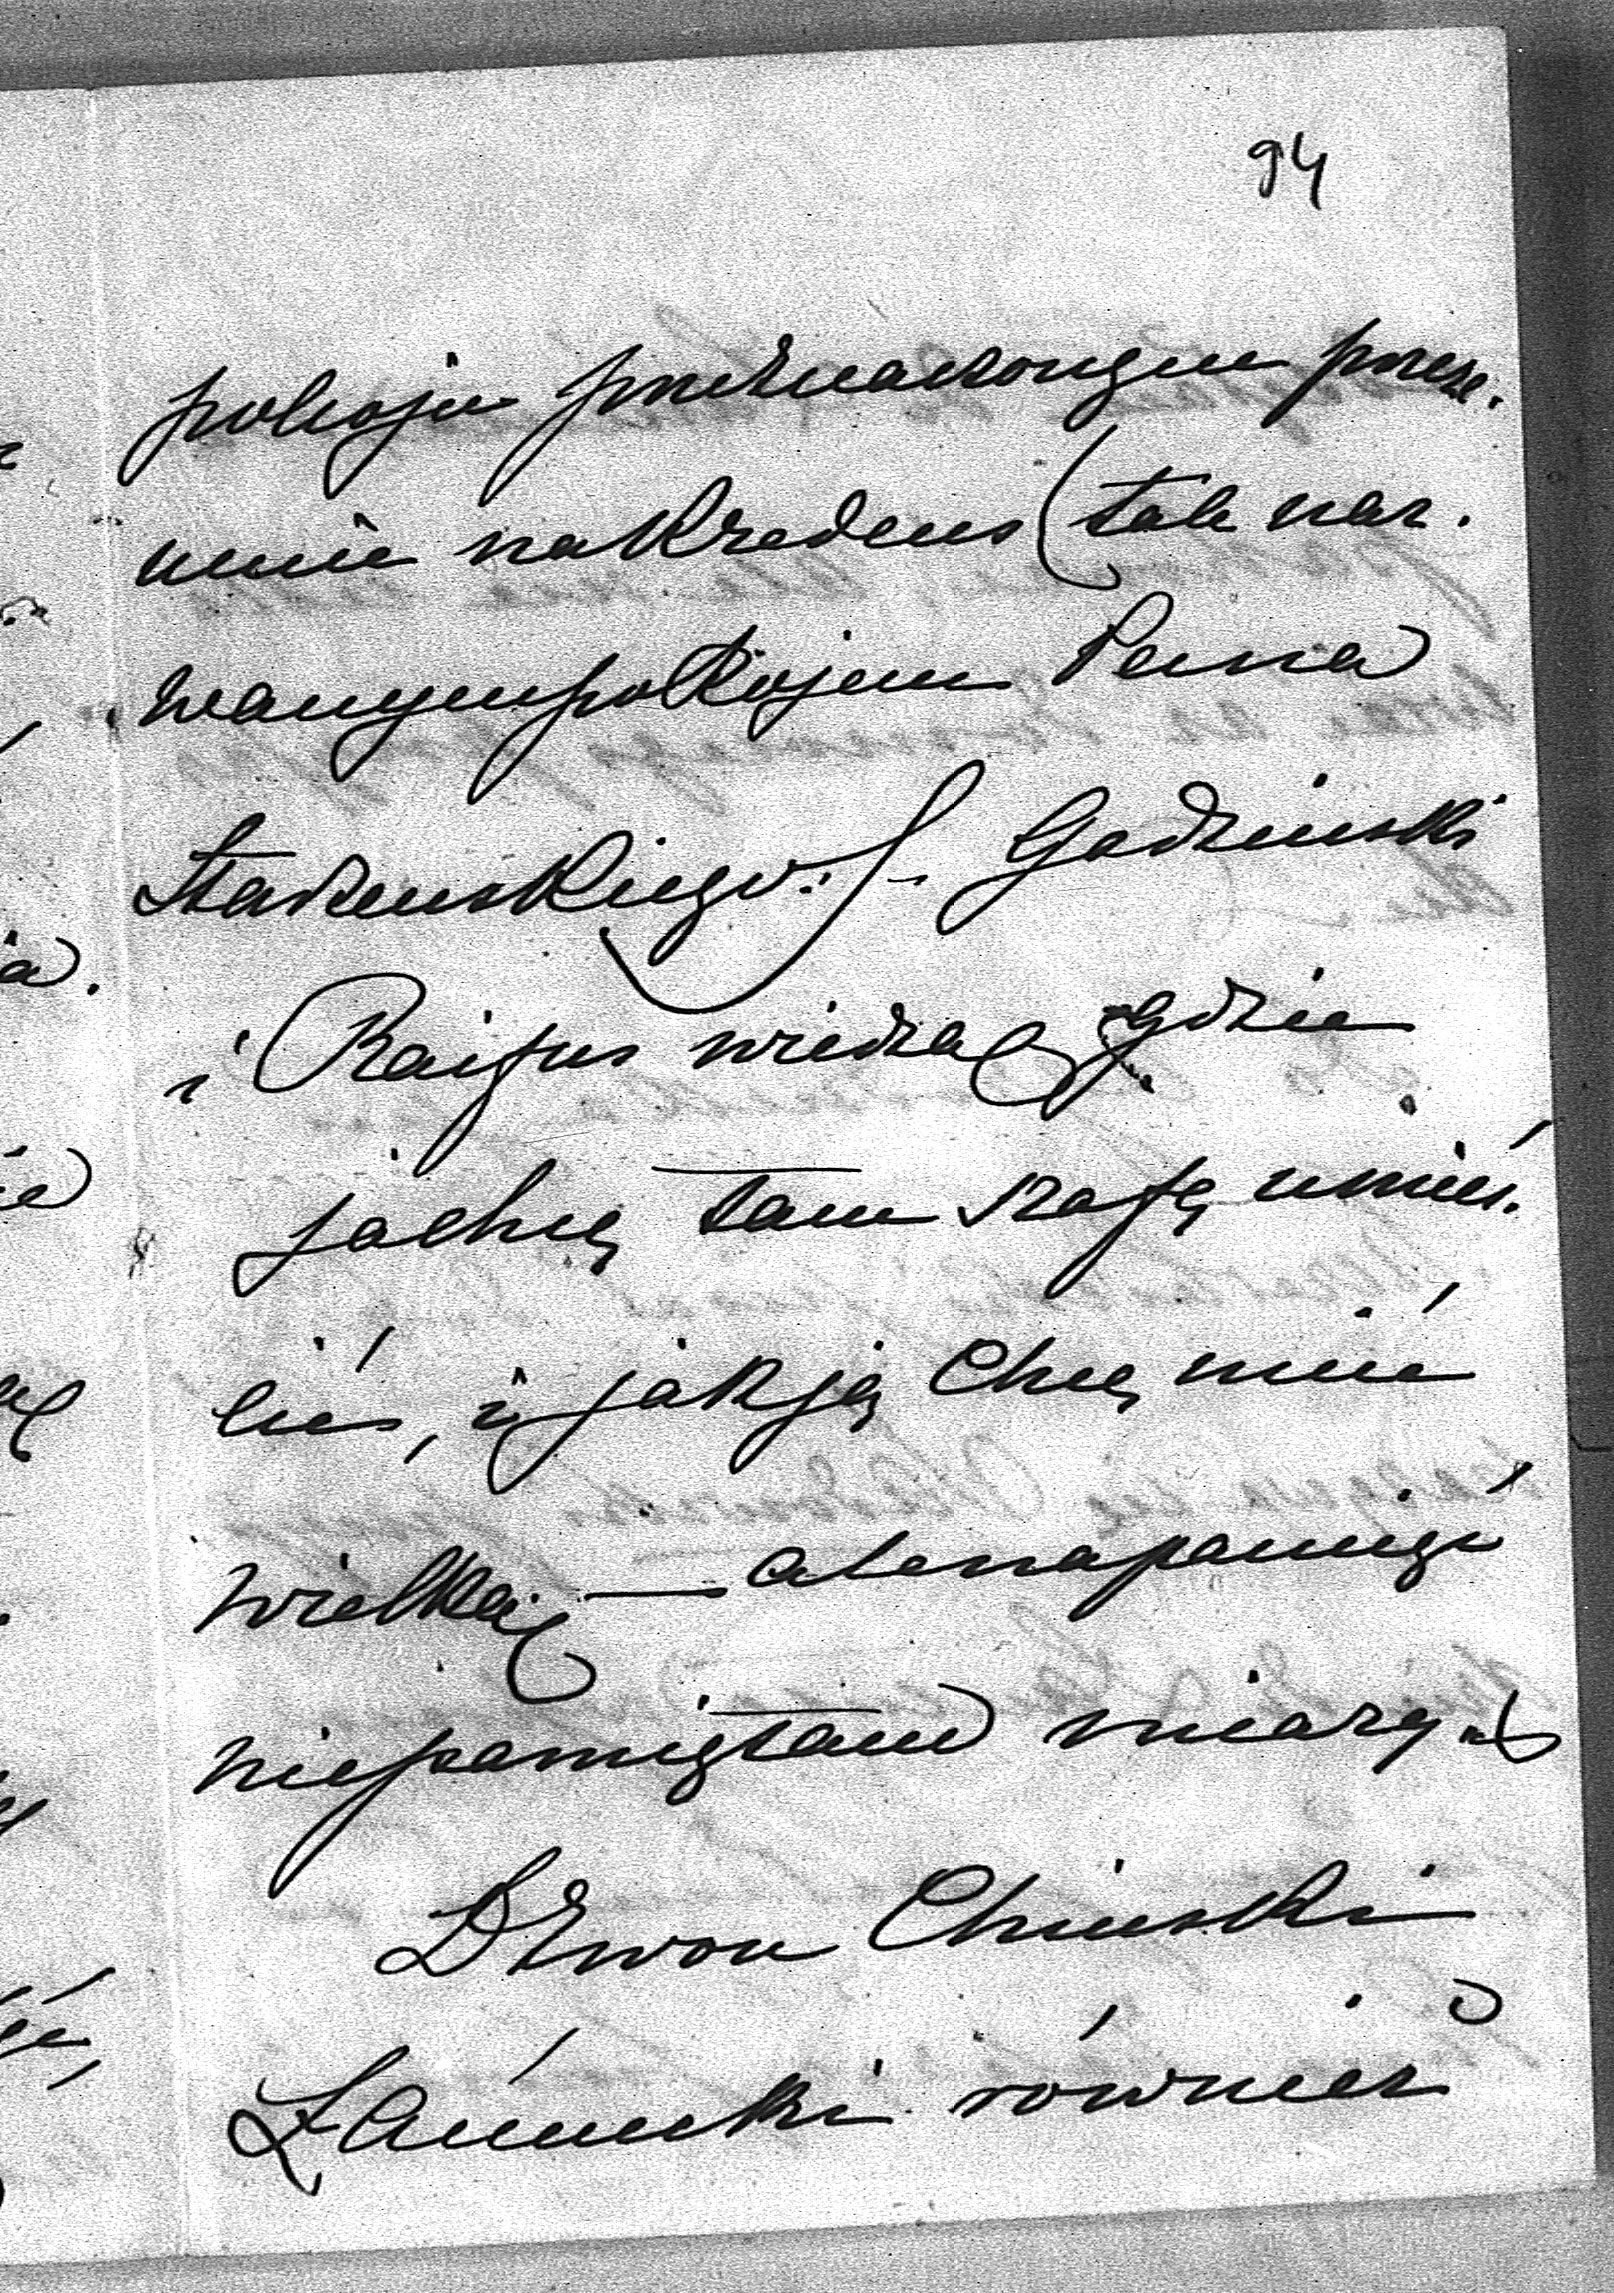 94
pokoju przeznaczonym przeze.
mnie na Kredens (tak naz.
wanym pokojem Pana
Stadzenskiego.) Godzinski
i Rajpus wiedzą gdzie
ja chcę tam szafę umieś.
cić, i jak ją chcę mieć
wielką — ale na pamięć
nie pamiętam miary.
Dzwon Chinski
z Łańcucki również